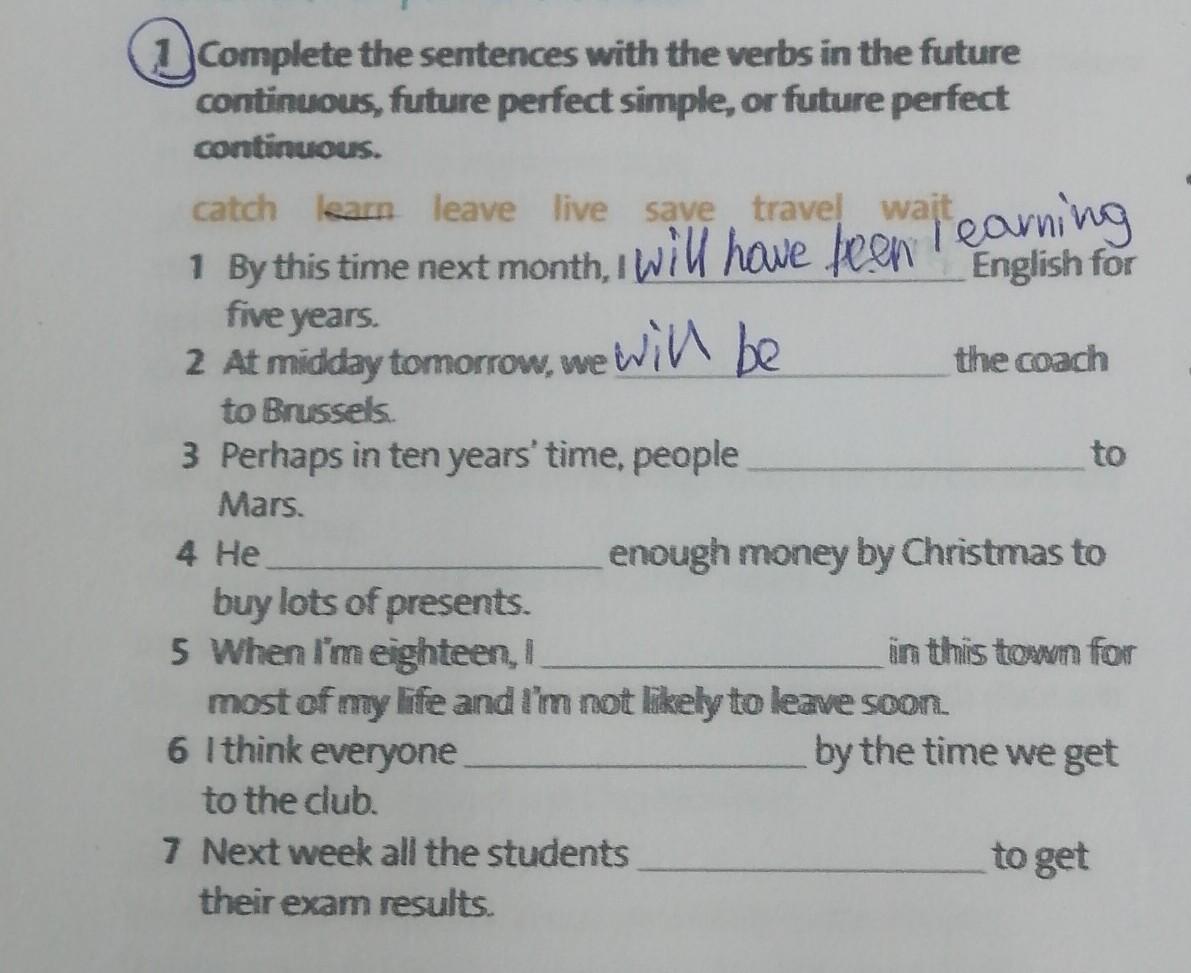 1 Complete the sentences with the verbs in the future
continuous, future perfect simple, or future perfect
continuous.
catch learn leave live save travel wait
1 By this time next month, I will have been learning English for
five years.
2 At midday tomorrow, we will be the coach
to Brussels.
3 Perhaps in ten years' time, people to
Mars.
4 He enough money by Christmas to
buy lots of presents.
5 When I'm eighteen, I in this town for
most of my life and I'm not likely to leave soon.
6 I think everyone by the time we get
to the club.
7 Next week all the students to get
their exam results.